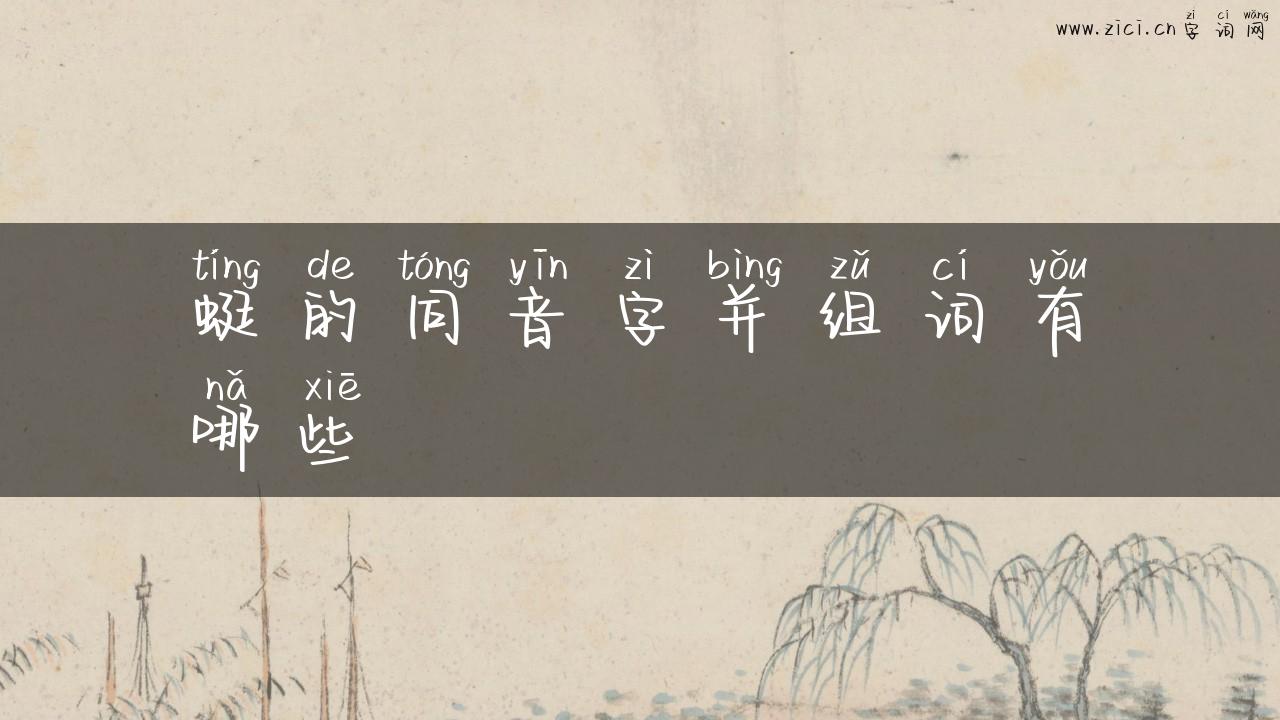 zì cí wǎng
www.zici.cn 字词网
tíng de tóng yīn zì bìng zǔ cí yǒu
蜓的同音字并组词有
nǎ xiē
哪些